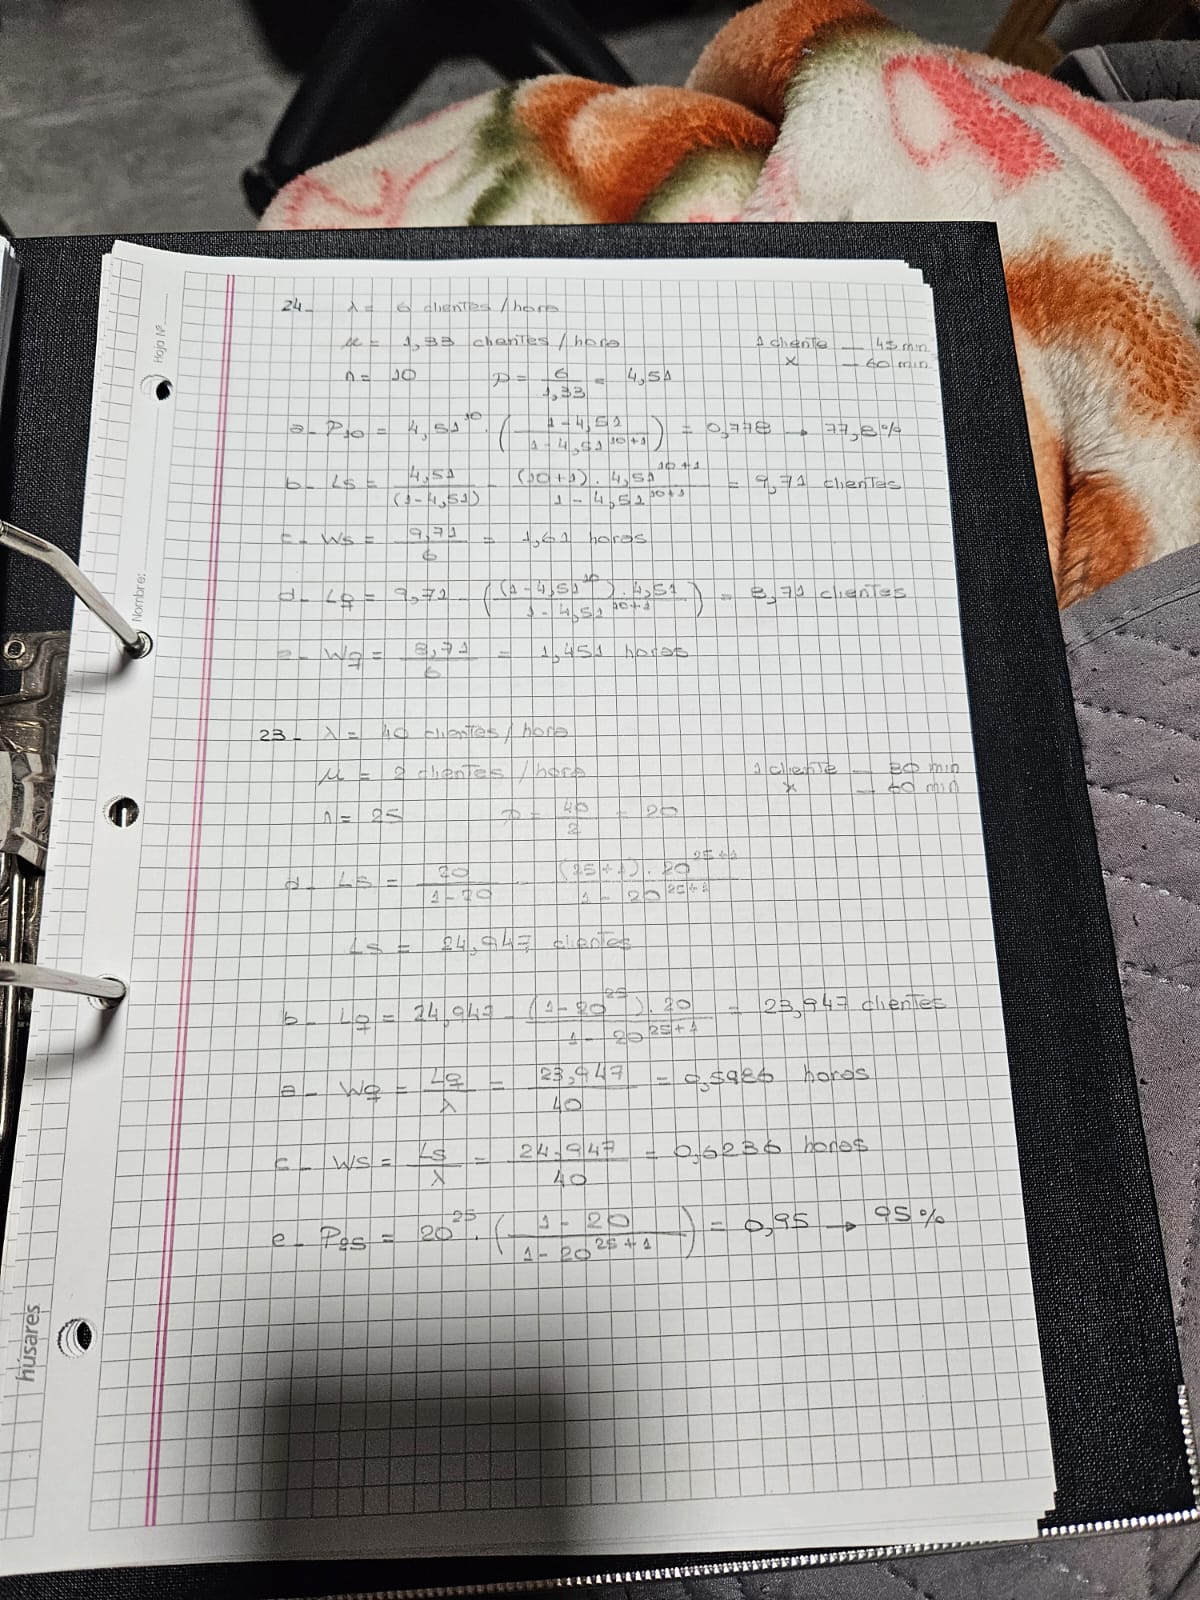 Hoja Nº
Nombre:
húsares
24- λ = 6 clientes / hora
μ = 1,33 clientes / hora 1 cliente — 45 min
n = 10 P = 6/1,33 = 4,51 x — 60 min
a- P10 = 4,51^10 · ( (1-4,51)/(1-4,51^10+1) ) = 0,778 → 77,8%
b- Ls = 4,51/(1-4,51) - (10+1) · 4,51^10+1/(1-4,51^10+1) = 9,71 clientes
c- Ws = 9,71/6 = 1,61 horas
d- Lq = 9,71 - ( (1-4,51^10) · 4,51/(1-4,51^10+1) ) = 8,71 clientes
e- Wq = 8,71/6 = 1,451 horas
23- λ = 40 clientes / hora
μ = 2 clientes / hora 1 cliente — 30 min
n = 25 P = 40/2 = 20 x — 60 min
d- Ls = 20/(1-20) - (25+1) · 20^25+1/(1-20^25+1)
Ls = 24,947 clientes
b- Lq = 24,947 - (1-20^25) · 20/(1-20^25+1) = 23,947 clientes
a- Wq = Lq/λ = 23,947/40 = 0,5986 horas
c- Ws = Ls/λ = 24,947/40 = 0,6236 horas
e- P25 = 20^25 · ( (1-20)/(1-20^25+1) ) = 0,95 → 95%